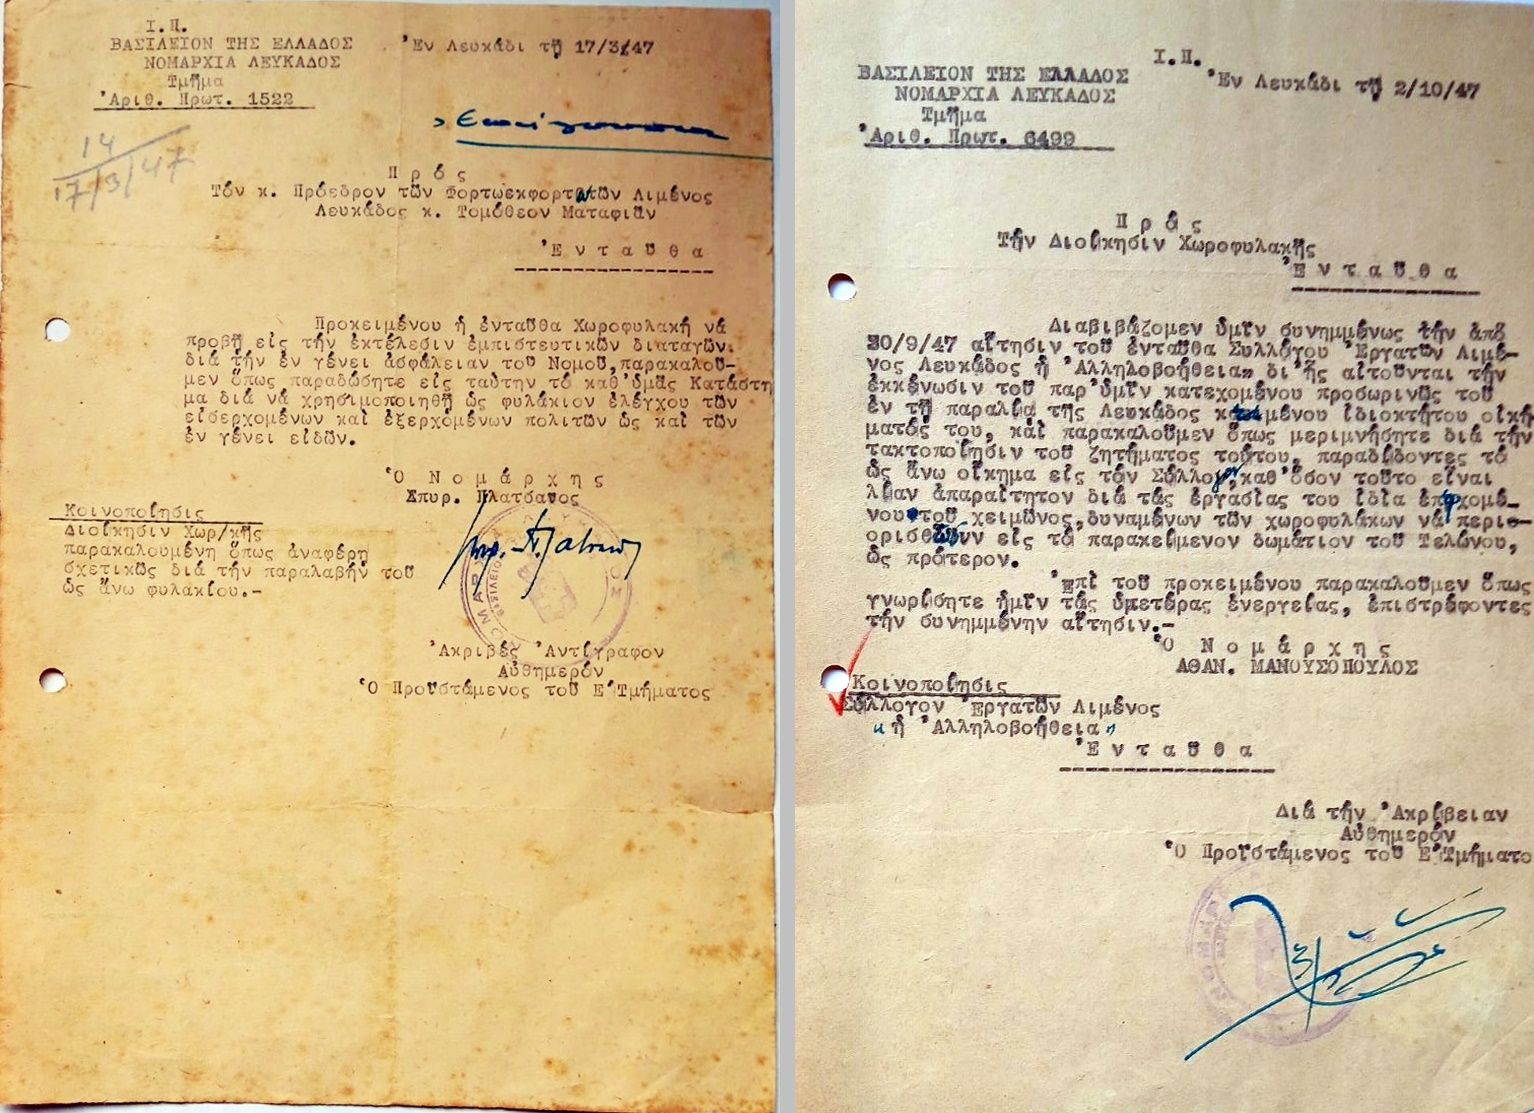 Ι.Π.
ΒΑΣΙΛΕΙΟΝ ΤΗΣ ΕΛΛΑΔΟΣ
ΝΟΜΑΡΧΙΑ ΛΕΥΚΑΔΟΣ
Τμῆμα
Ἀριθ. Πρωτ. 1522
Ἐν Λευκάδι τῇ 17/3/47
14
17/3/47
Π ρ ό ς
Τόν κ. Πρόεδρον τῶν Φορτωεκφορτωτῶν Λιμένος
Λευκάδος κ. Τομόθεον Ματαφιᾶν
Ἐ ν τ α ῦ θ α
Προκειμένου ἡ ἐνταῦθα Χωροφυλακή νά
προβῇ εἰς τήν ἐκτέλεσιν ἐμπιστευτικῶν διαταγῶν.
διά τήν ἐν γένει ἀσφάλειαν τοῦ Νομοῦ,παρακαλοῦ-
μεν ὅπως παραδώσητε εἰς ταύτην τό καθ'ὑμᾶς Κατάστη
μα διά νά χρησιμοποιηθῇ ὡς φυλάκιον ἐλέγχου τῶν
εἰσερχομένων καί ἐξερχομένων πολιτῶν ὡς καί τῶν
ἐν γένει εἰδῶν.
Ὁ Ν ο μ ά ρ χ η ς
Σπυρ. Πλατσανος
Κοινοποίησις
Διοίκησιν Χωρ/κῆς
παρακαλουμένη ὅπως ἀναφέρῃ
σχετικῶς διά τήν παραλαβήν τοῦ
ὡς ἄνω φυλακίου.-
Ἀκριβές Ἀντίγραφον
Αὐθημερόν
Ὁ Προϊστάμενος τοῦ Ε'Τμήματος
Ι.Π.
ΒΑΣΙΛΕΙΟΝ ΤΗΣ ΕΛΛΑΔΟΣ
ΝΟΜΑΡΧΙΑ ΛΕΥΚΑΔΟΣ
Τμῆμα
Ἀριθ. Πρωτ. 6499
Ἐν Λευκάδι τῇ 2/10/47
Π ρ ό ς
Τήν Διοίκησιν Χωροφυλακῆς
Ἐ ν τ α ῦ θ α
Διαβιβάζομεν ὑμῖν συνημμένως τήν ἀπό
30/9/47 αἴτησιν τοῦ ἐνταῦθα Συλλόγου Ἐργατῶν Λιμέ-
νος Λευκάδος ἡ Ἀλληλοβοήθεια" δι'ἧς αἰτοῦνται τήν
ἐκκένωσιν τοῦ παρ'ὑμῖν κατεχομένου προσωρινῶς τοῦ
ἐν τῇ παραλίᾳ τῆς Λευκάδος κειμένου ἰδιοκτήτου οἰκή
ματός του, καί παρακαλοῦμεν ὅπως μεριμνήσητε διά τήν
τακτοποίησιν τοῦ ζητήματος τούτου, παραδίδοντες τό
ὡς ἄνω οἴκημα εἰς τόν Σύλλογον,καθ'ὅσον τοῦτο εἶναι
λίαν ἀπαραίτητον διά τάς ἐργασίας του ἰδίᾳ ἐπερχομέ-
νου τοῦ χειμῶνος,δυναμένων τῶν χωροφυλάκων νά περιο-
ορισθῶσιν εἰς τό παρακείμενον δωμάτιον τοῦ Τελώνου,
ὡς πρότερον.
Ἐπί τοῦ προκειμένου παρακαλοῦμεν ὅπως
γνωρίσητε ἡμῖν τάς ὑμετέρας ἐνεργείας, ἐπιστρέφοντες
τήν συνημμένην αἴτησιν.-
Ὁ Ν ο μ ά ρ χ η ς
ΑΘΑΝ. ΜΑΝΟΥΣΟΠΟΥΛΟΣ
Κοινοποίησις
Σύλλογον Ἐργατῶν Λιμένος
" ἡ Ἀλληλοβοήθεια"
Ἐ ν τ α ῦ θ α
Διά τήν Ἀκρίβειαν
Αὐθημερόν
Ὁ Προϊστάμενος τοῦ Ε'Τμήματο